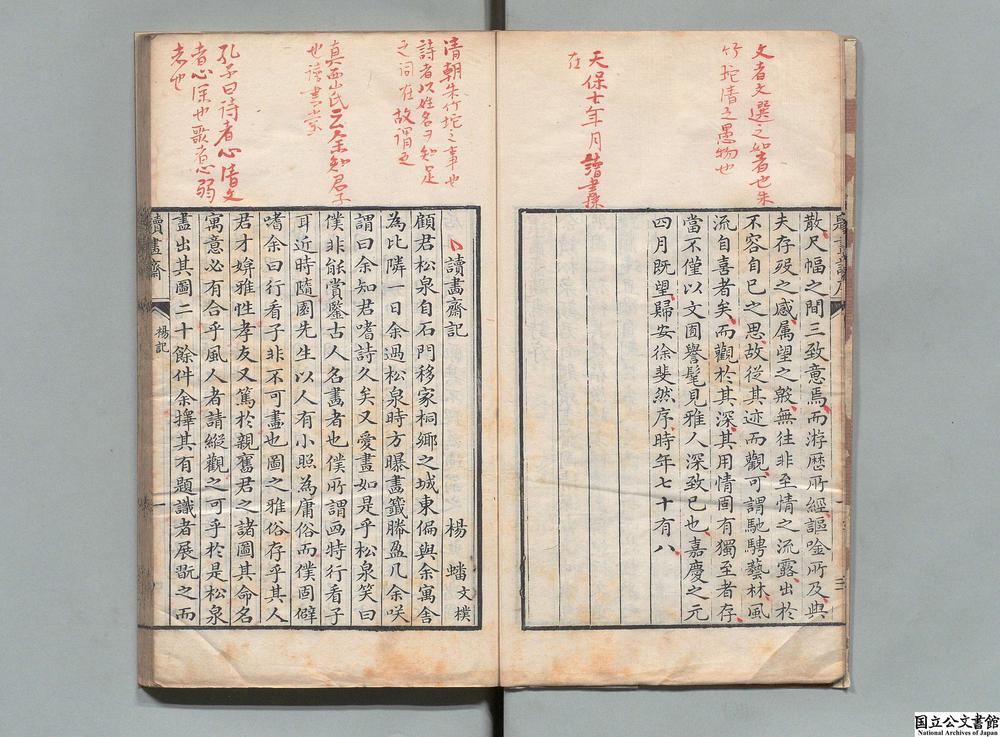 文者文選之如者也朱
竹坨清之愚物也
天保十年月讀書採
在
散尺幅之間三致意焉而游歷所經謳唫所及與
夫存歿之感属望之殷無往非至情之流露出於
不容自已之思故從其迹而觀可謂馳騁藝林風
流自喜者矣而觀於其深其用情固有獨至者存
當不僅以文囿譽髦見雅人深致已也嘉慶之元
四月既望歸安徐斐然序時年七十有八
清朝朱竹坨之事也
詩者以姓名ヲ知足
之词在故謂之
真西山氏云余知君子
也讀書堂
孔子曰诗者心清文
者心深也歌者心弱
者也
讀畫齋記
楊蟠文樸
顧君松泉自石門移家桐鄉之城東偏與余寓舍
為比隣一日余過松泉時方曝畫籤賸盈几余咲
謂曰余知君嗜詩久矣又愛畫如是乎松泉笑曰
僕非能賞鑒古人名畫者也僕所謂画特行看子
耳近時隨園先生以人有小照為庸俗而僕固僻
嗜余曰行看子非不可畫也圖之雅俗存乎其人
君才媕雅性孝友又篤於親舊君之諸圖其命名
寓意必有合乎風人者請縱觀之可乎於是松泉
盡出其圖二十餘件余擇其有題識者展翫之而
讀畫齋
楊記
一
国立公文書館
National Archives of Japan